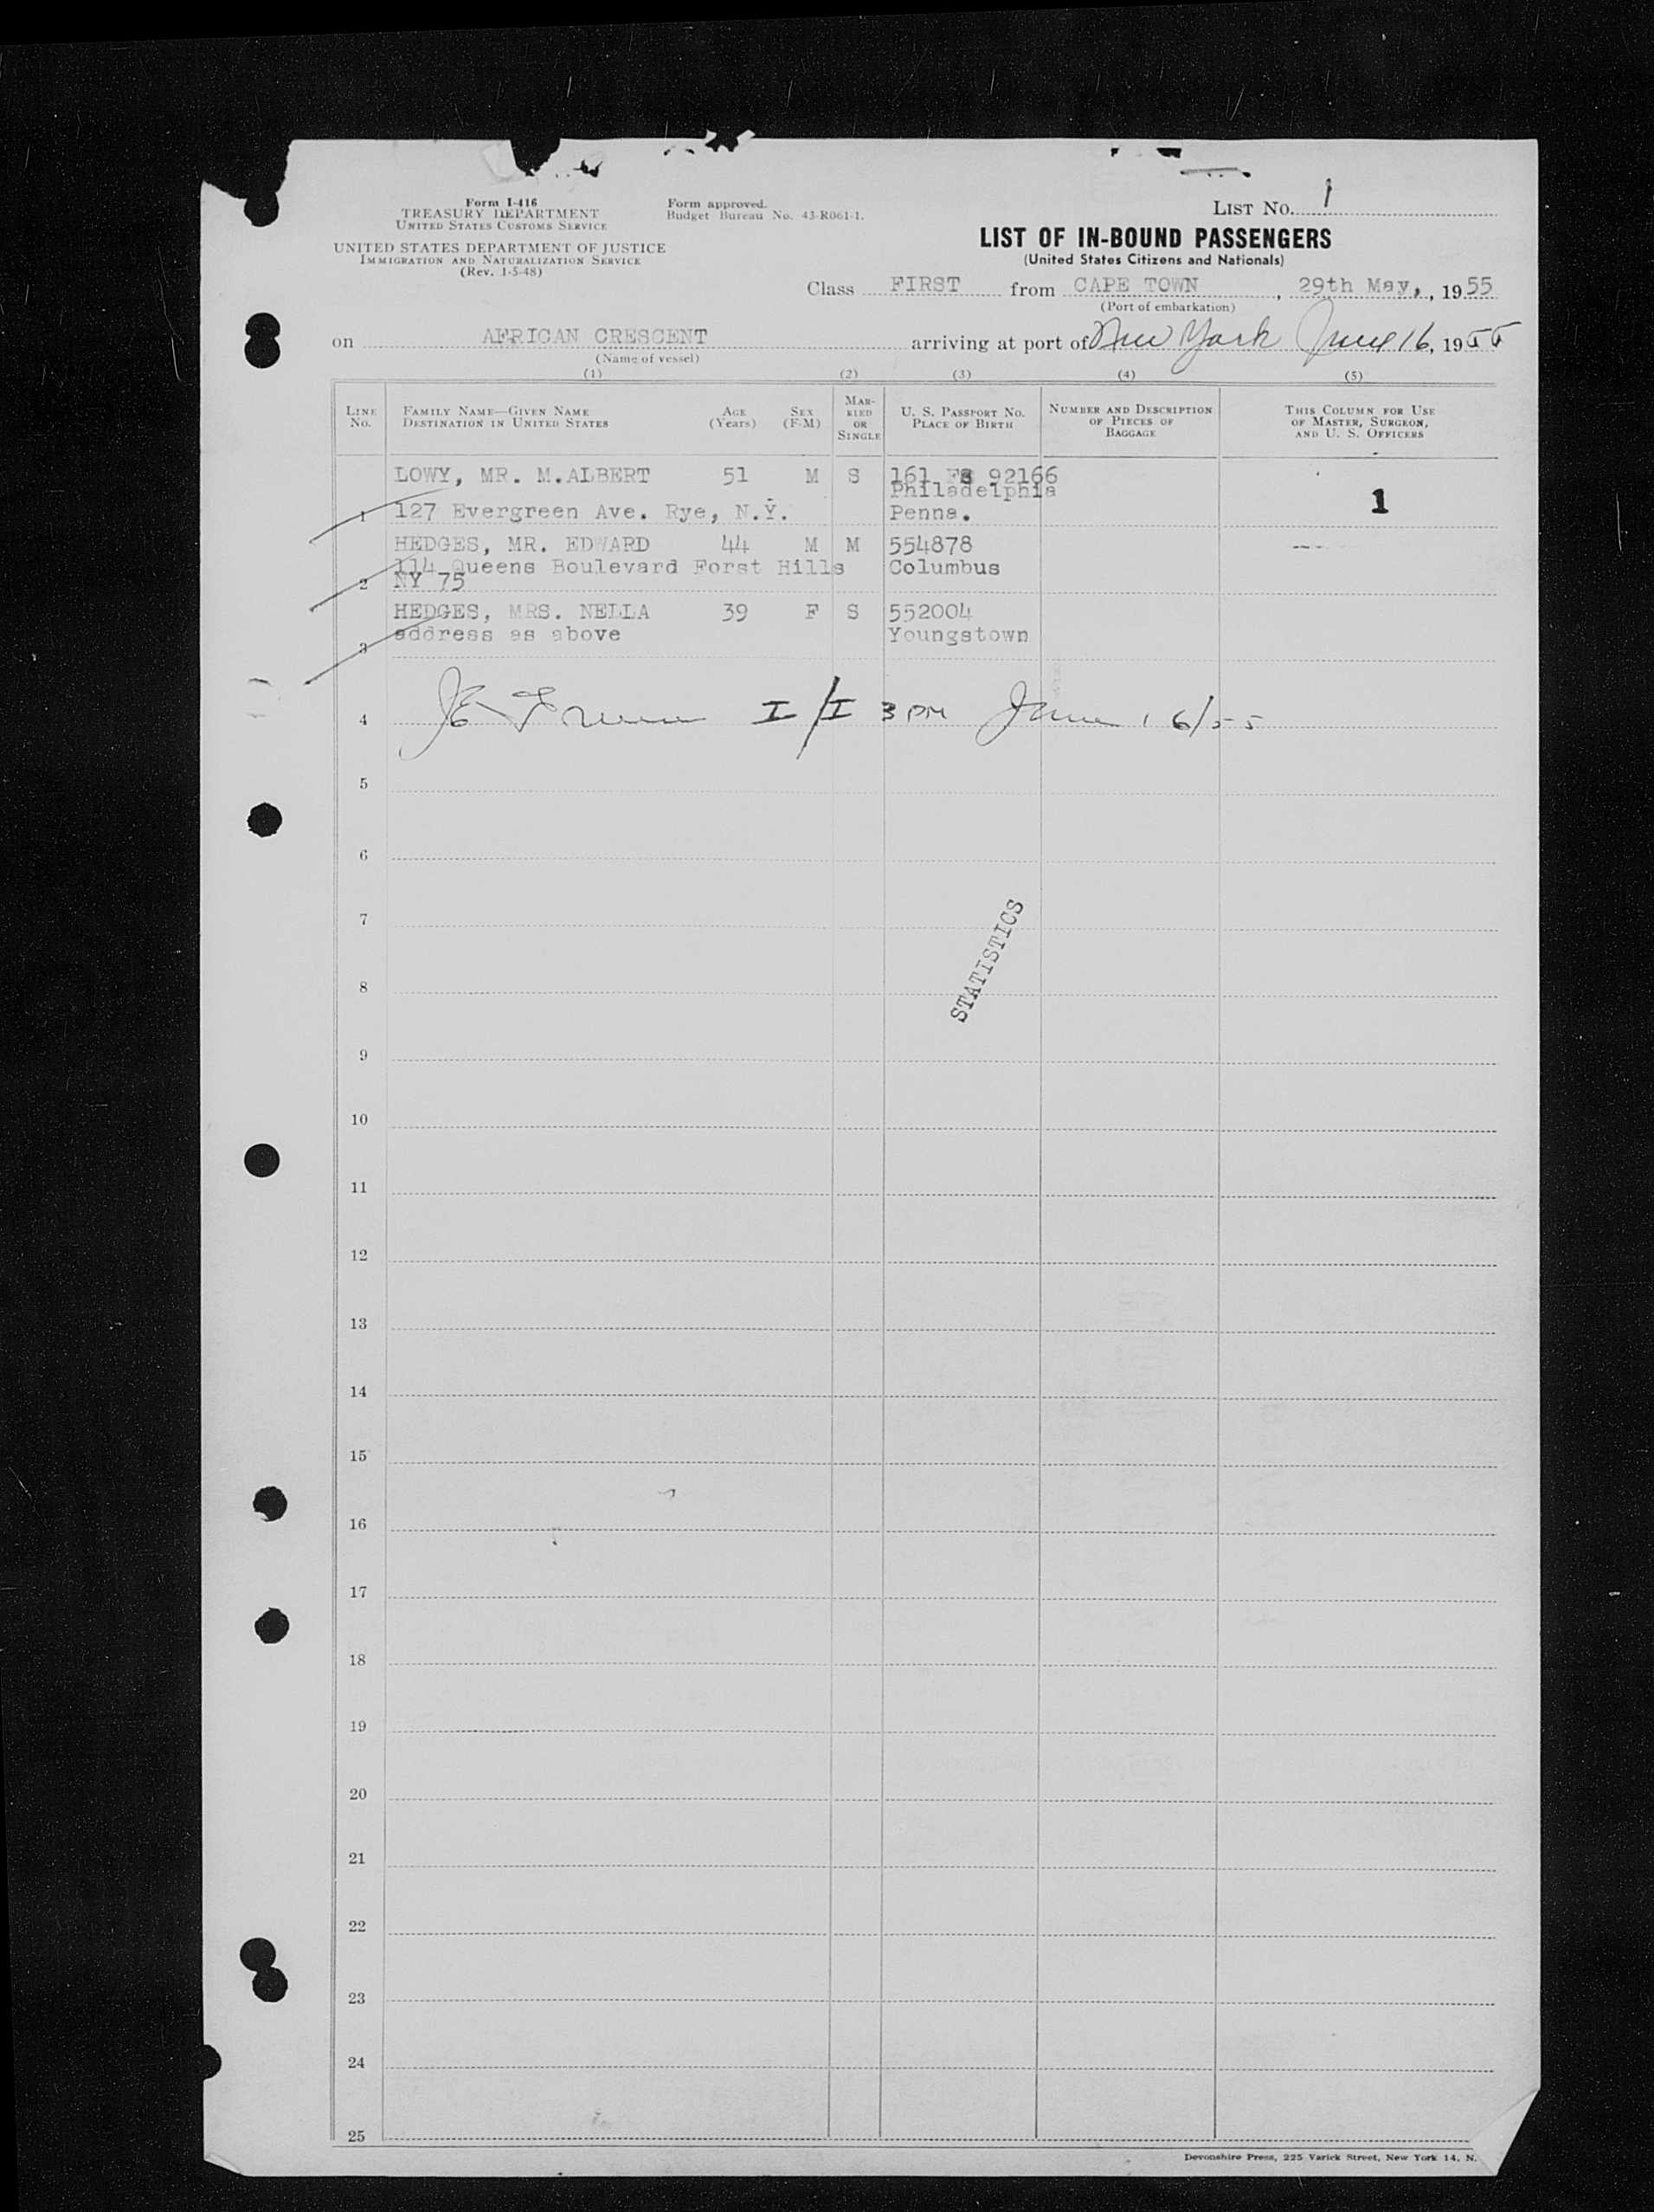 Form I-416
TREASURY DEPARTMENT
UNITED STATES CUSTOMS SERVICE
UNITED STATES DEPARTMENT OF JUSTICE
IMMIGRATION AND NATURALIZATION SERVICE
(Rev. 1-5-48)
Form approved.
Budget Bureau No. 43-R061-1.
LIST NO. 1
LIST OF IN-BOUND PASSENGERS
(United States Citizens and Nationals)
Class FIRST from CAPE TOWN, 29th May, 1955
(Port of embarkation)
on AFRICAN CRESCENT arriving at port of New York June 16, 1955
(Name of vessel)
(1) (2) (3) (4) (5)
LINE NO.
FAMILY NAME—GIVEN NAME
DESTINATION IN UNITED STATES
AGE (Years)
SEX (F-M)
MARRIED OR SINGLE
U. S. PASSPORT NO.
PLACE OF BIRTH
NUMBER AND DESCRIPTION OF PIECES OF BAGGAGE
THIS COLUMN FOR USE OF MASTER, SURGEON, AND U. S. OFFICERS
LOWY, MR. M.ALBERT 51 M S 161 FS 92166
Philadelphia
1 127 Evergreen Ave. Rye, N.Y. Penna. 1
HEDGES, MR. EDWARD 44 M M 554878
114 Queens Boulevard Forst Hills Columbus
2 NY 75
HEDGES, MRS. NELLA 39 F S 552004
address as above Youngstown
3
4 I/I 3 PM June 16/55
5
6
7
STATISTICS
8
9
10
11
12
13
14
15
16
17
18
19
20
21
22
23
24
25
Devonshire Press, 225 Varick Street, New York 14, N.